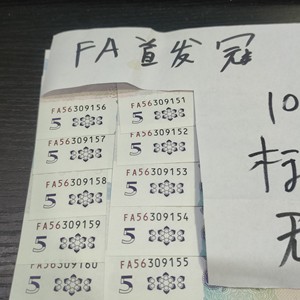 FA首发冠
10
标
无
FA56309156
5
FA56309157
5
FA56309158
5
FA56309159
5
FA56309160
5
FA56309151
5
FA56309152
5
FA56309153
5
FA56309154
5
FA56309155
5